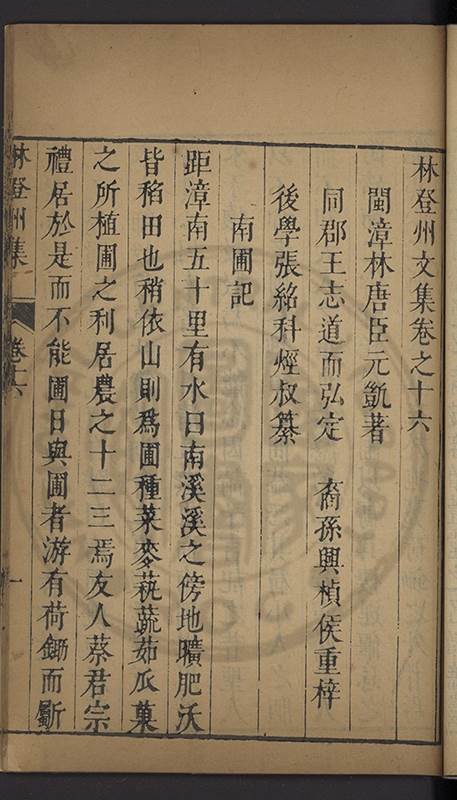 林登州文集卷之十六
閩漳林唐臣元凱著
同郡王志道而弘定　裔孫興楨侯重梓
後學張紹科烴叔纂
南圃記
距漳南五十里有水曰南溪溪之傍地曠肥沃
皆稻田也稍依山則爲圃種菜麥蓺蔬茹瓜菓
之所植圃之利居農之十二三焉友人蔡君宗
禮居於是而不能圃日與圃者游有荷鋤而斸
林登州集
卷十六
一